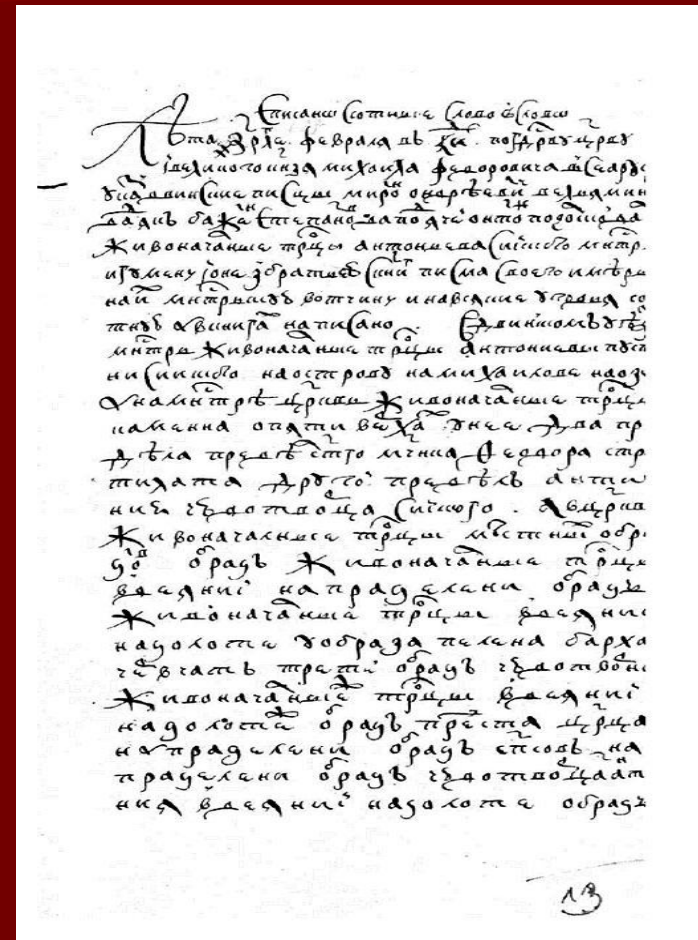 Списание Сотные слово въ слово
Лѣта ҂зр҃ле февраля въ к҃и по гдрву црву
і великого кнзя михаила федоровича
двинские писцы миронъ ондрѣевич вельямин
да дякъ
живоначалные трцы антониева сискаго мнтр
игумену ионе з братьею с книг писма своего и мѣры
на их мнтрьскую вотчину и на всякие угодья со
тную а в книгах написано в двинскомъ уѣз
мнтрь живоначалные трцы антониевы пуст
ни сийского на острову на михаилове на оз
а на мнтрѣ црквь живоначалные трцы
каменна о пяти верхах у нее два пр
дѣла предѣлъ стго мчнка феодора стр
тилата другой предѣлъ анто
ния чюдотворца сийского а в цркв
живоначалные трцы мѣстныи обр
зов образъ живоначалные трцы
в деянии на празелени образъ
живоначалные трцы в деяние
на золоте у образа пелена барха
червчатъ третей образъ чюдотворн
живоначалные трцы в деянии
на золоте образъ преста црца
на празелени образъ спсовъ на
празелени образъ чюдотворца ант
ния в деянии на золоте образъ
13